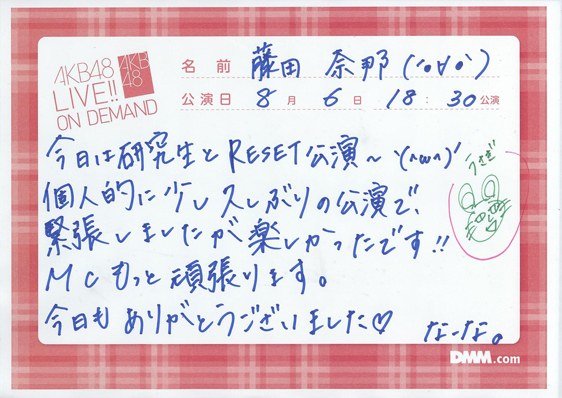 AKB48
LIVE!!
ON DEMAND
AKB
48
名前 藤田 奈那(°∀°)
公演日 8月 6日 18:30公演
今日は研究生とRESET公演〜 '(^ω^)'
個人的に少し久しぶりの公演で、
緊張しましたが楽しかったです!!
MCもっと頑張ります。
今日もありがとうございました♡
うさぎ
なーな。
DMM.com